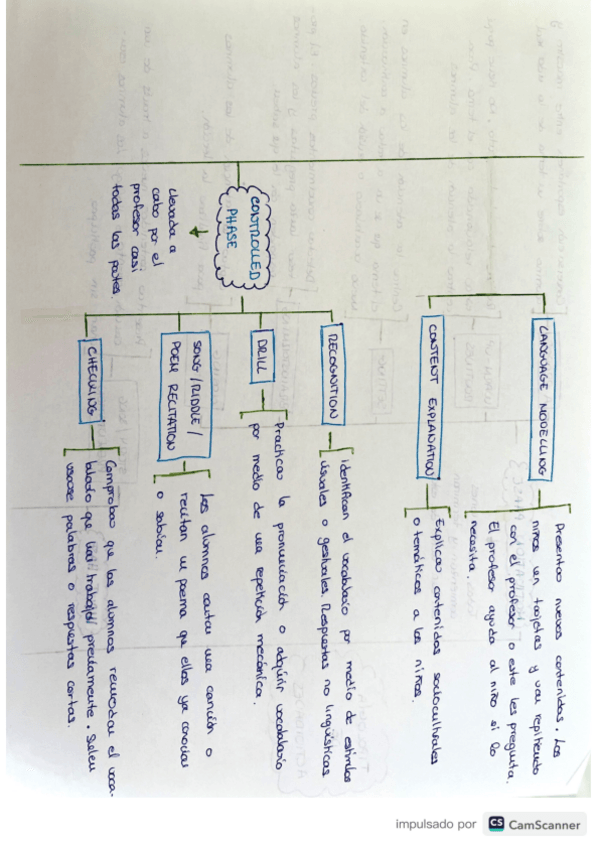 CONTROLLED
PHASE
llevada a
cabo por el
profesor casi
todas las partes.
LANGUAGE MODELLING
Presentar nuevos contenidos. Los
niños ven tarjetas y van repitiendo
con el profesor o este les pregunta.
El profesor ayuda al niño si lo
necesita.
CONTENT EXPLANATION
Explicar contenidos socioculturales
o temáticos a los niños.
RECOGNITION
Identifican el vocabulario por medio de estímulos
visuales o gestuales. Respuestas no lingüísticas
DRILL
Practicar la pronunciación o adquirir vocabulario
por medio de una repetición mecánica.
SONG/RIDDLE/
POEM RECITATION
Los alumnos cantan una canción o
recitan un poema que ellos ya conocían
o sabían.
CHECKING
Comprobar que los alumnos recuerdan el voca-
bulario que han trabajado previamente. Suelen
usarse palabras o respuestas cortas.
impulsado por CS CamScanner